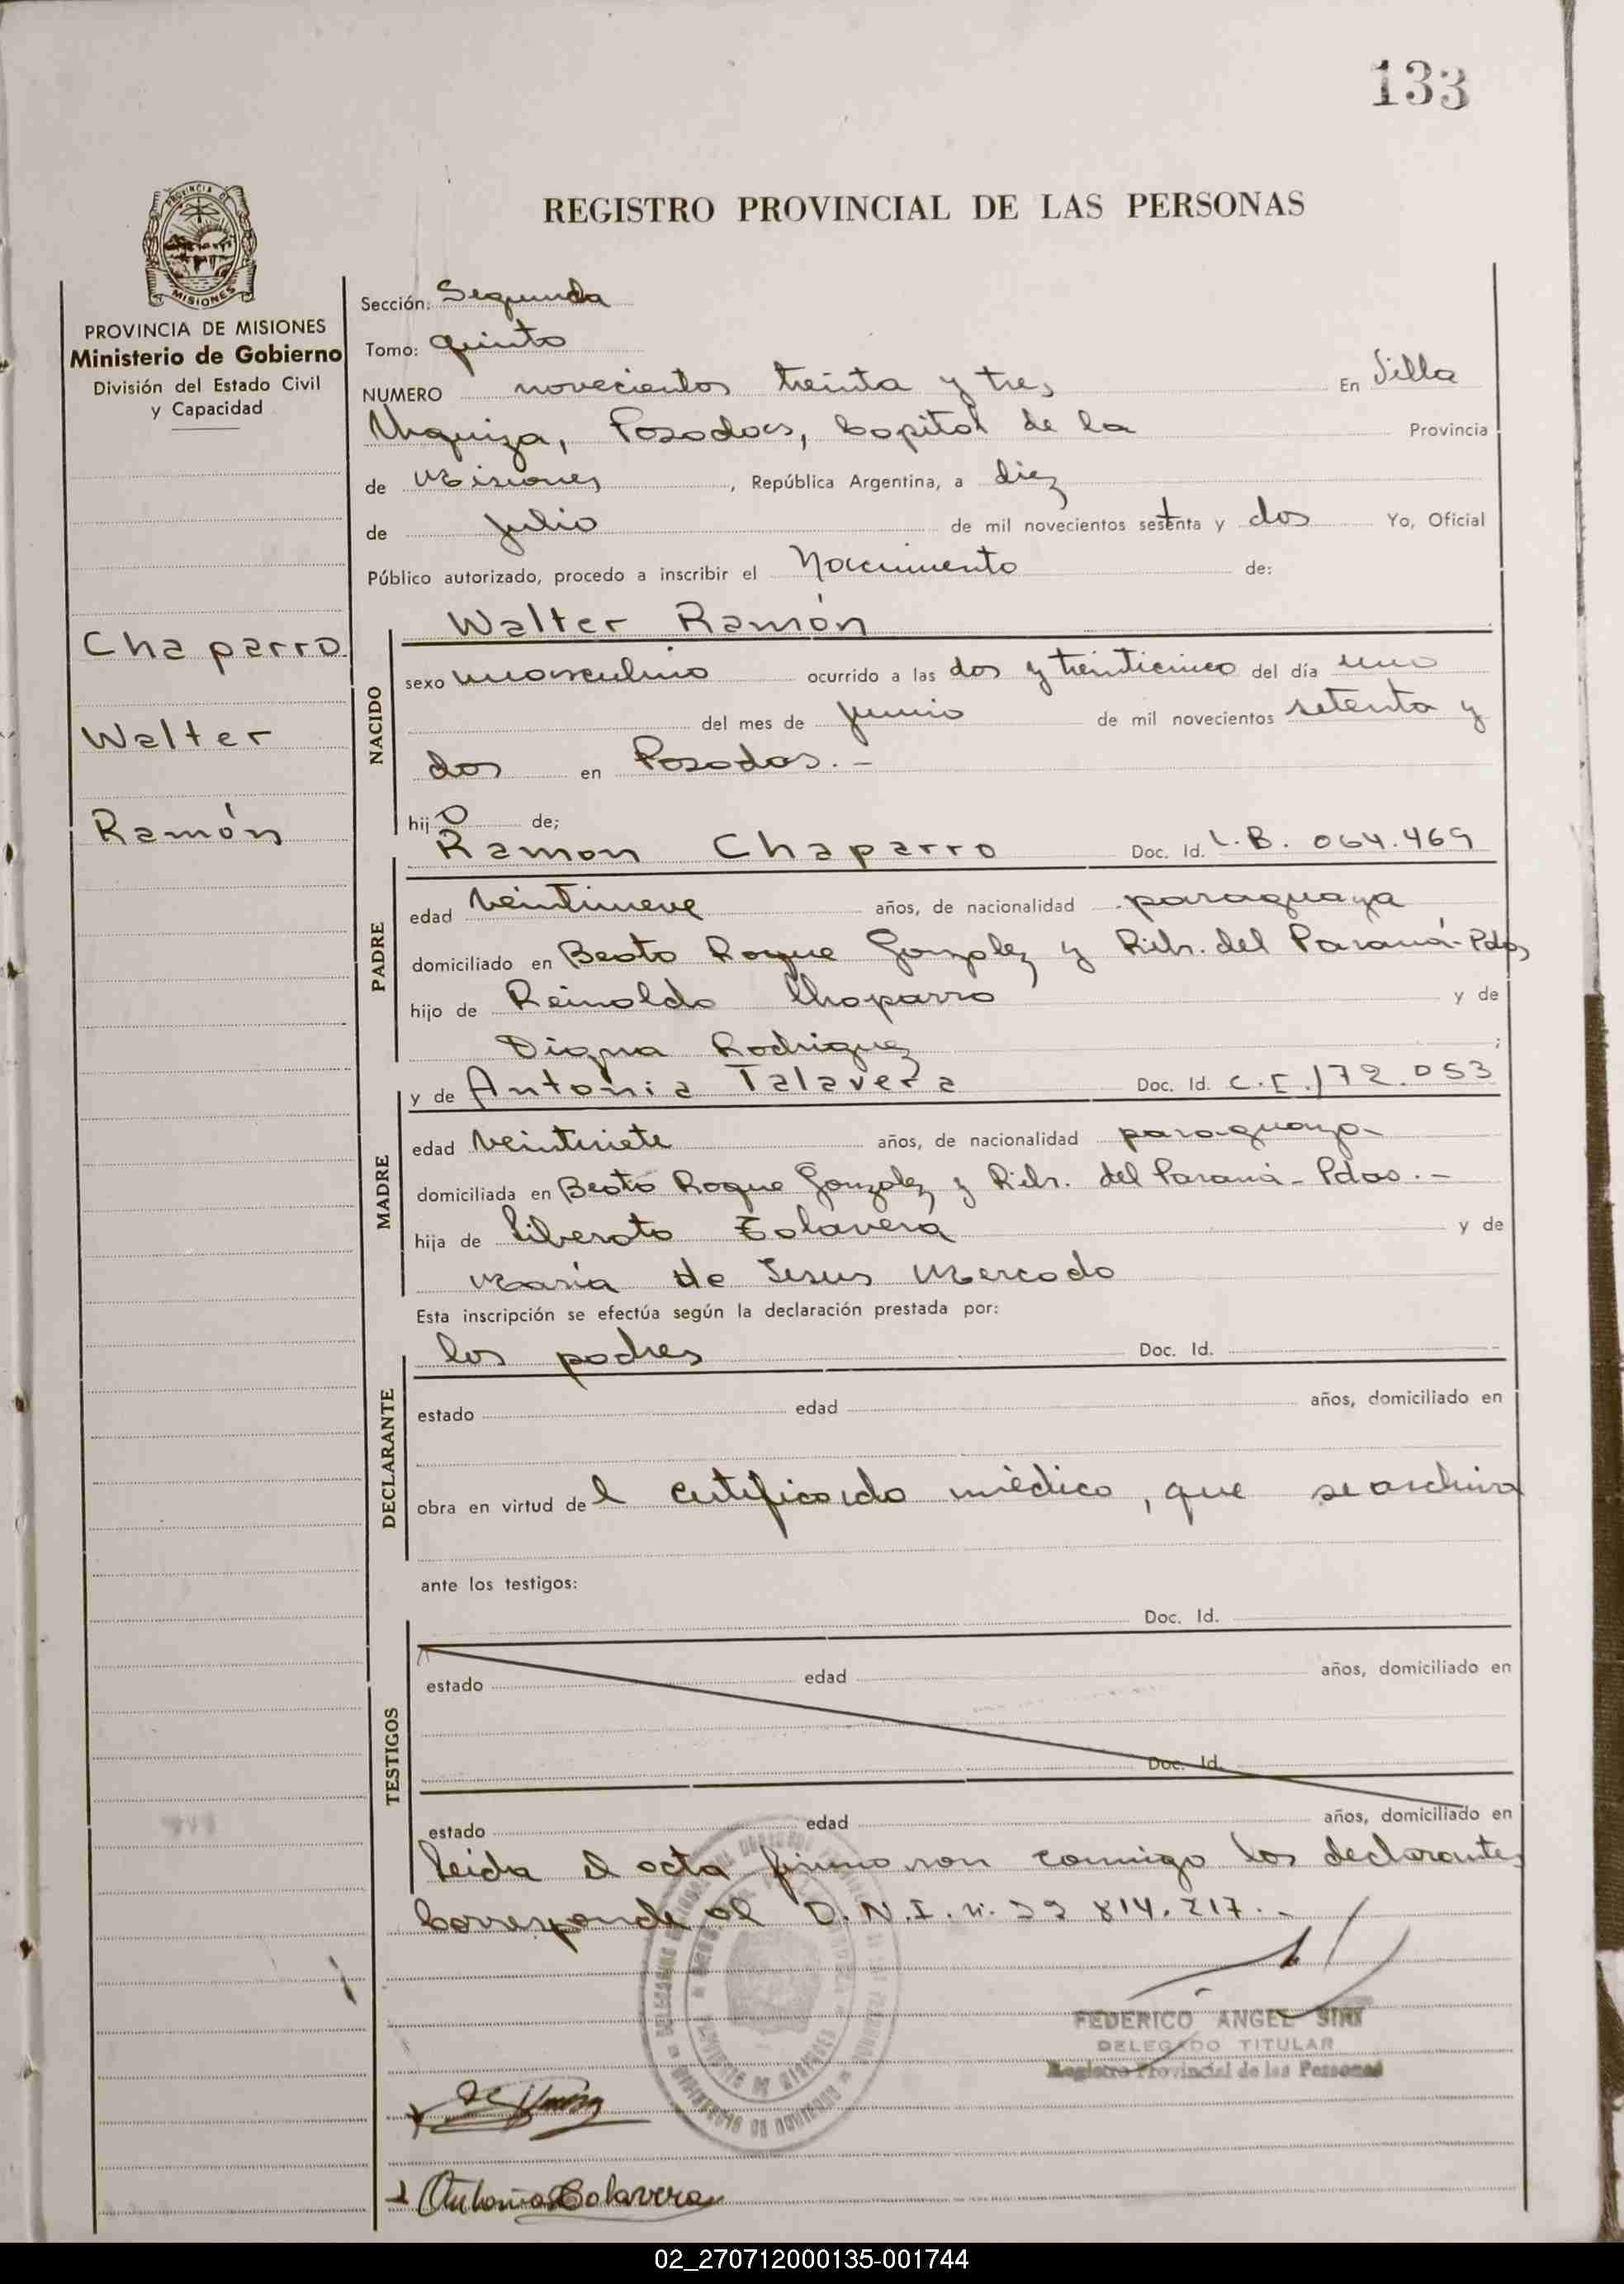 133
REGISTRO PROVINCIAL DE LAS PERSONAS
PROVINCIA DE MISIONES
Ministerio de Gobierno
División del Estado Civil
y Capacidad
Chaparro
Walter
Ramón
Sección: Segunda
Tomo: quinto
NUMERO novecientos treinta y tres En Villa
Urquiza, Posadas, Capital de la Provincia
de Misiones, República Argentina, a diez
de julio de mil novecientos setenta y dos Yo, Oficial
Público autorizado, procedo a inscribir el Nacimiento de:
NACIDO
Walter Ramón
sexo masculino ocurrido a las dos y treinticinco del día uno
del mes de junio de mil novecientos setenta y
dos en Posadas.-
hijo de;
PADRE
Ramon Chaparro Doc. Id. L.B. 064.469
edad veintinueve años, de nacionalidad paraguaya
domiciliado en Beato Roque Gonzalez y Rib. del Paraná-Pdas
hijo de Reinaldo Chaparro y de
Digna Rodriguez;
MADRE
y de Antonia Talavera Doc. Id. 172.053
edad veintisiete años, de nacionalidad paraguaya
domiciliada en Beato Roque Gonzalez y Rib. del Paraná-Pdas.-
hija de Liberato Talavera y de
María de Jesus Mercado
Esta inscripción se efectúa según la declaración prestada por:
DECLARANTE
los padres Doc. Id.
estado edad años, domiciliado en
obra en virtud del certificado médico, que se archiva
ante los testigos:
TESTIGOS
Doc. Id.
estado edad años, domiciliado en
Doc. Id.
estado edad años, domiciliado en
Leida el acta firmaron conmigo los declarantes
Corresponde al D.N.I. n. 22 814.217.-
FEDERICO ANGEL SIRI
DELEGADO TITULAR
Registro Provincial de las Personas
Antonia Talavera
02_270712000135-001744